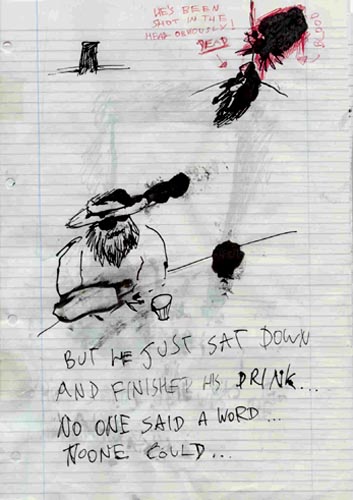 HE'S BEEN
SHOT IN THE
HEAD OBVIOUSLY!
DEAD
BLOOD
BUT HE JUST SAT DOWN
AND FINISHED HIS DRINK...
NO ONE SAID A WORD...
NOONE COULD...